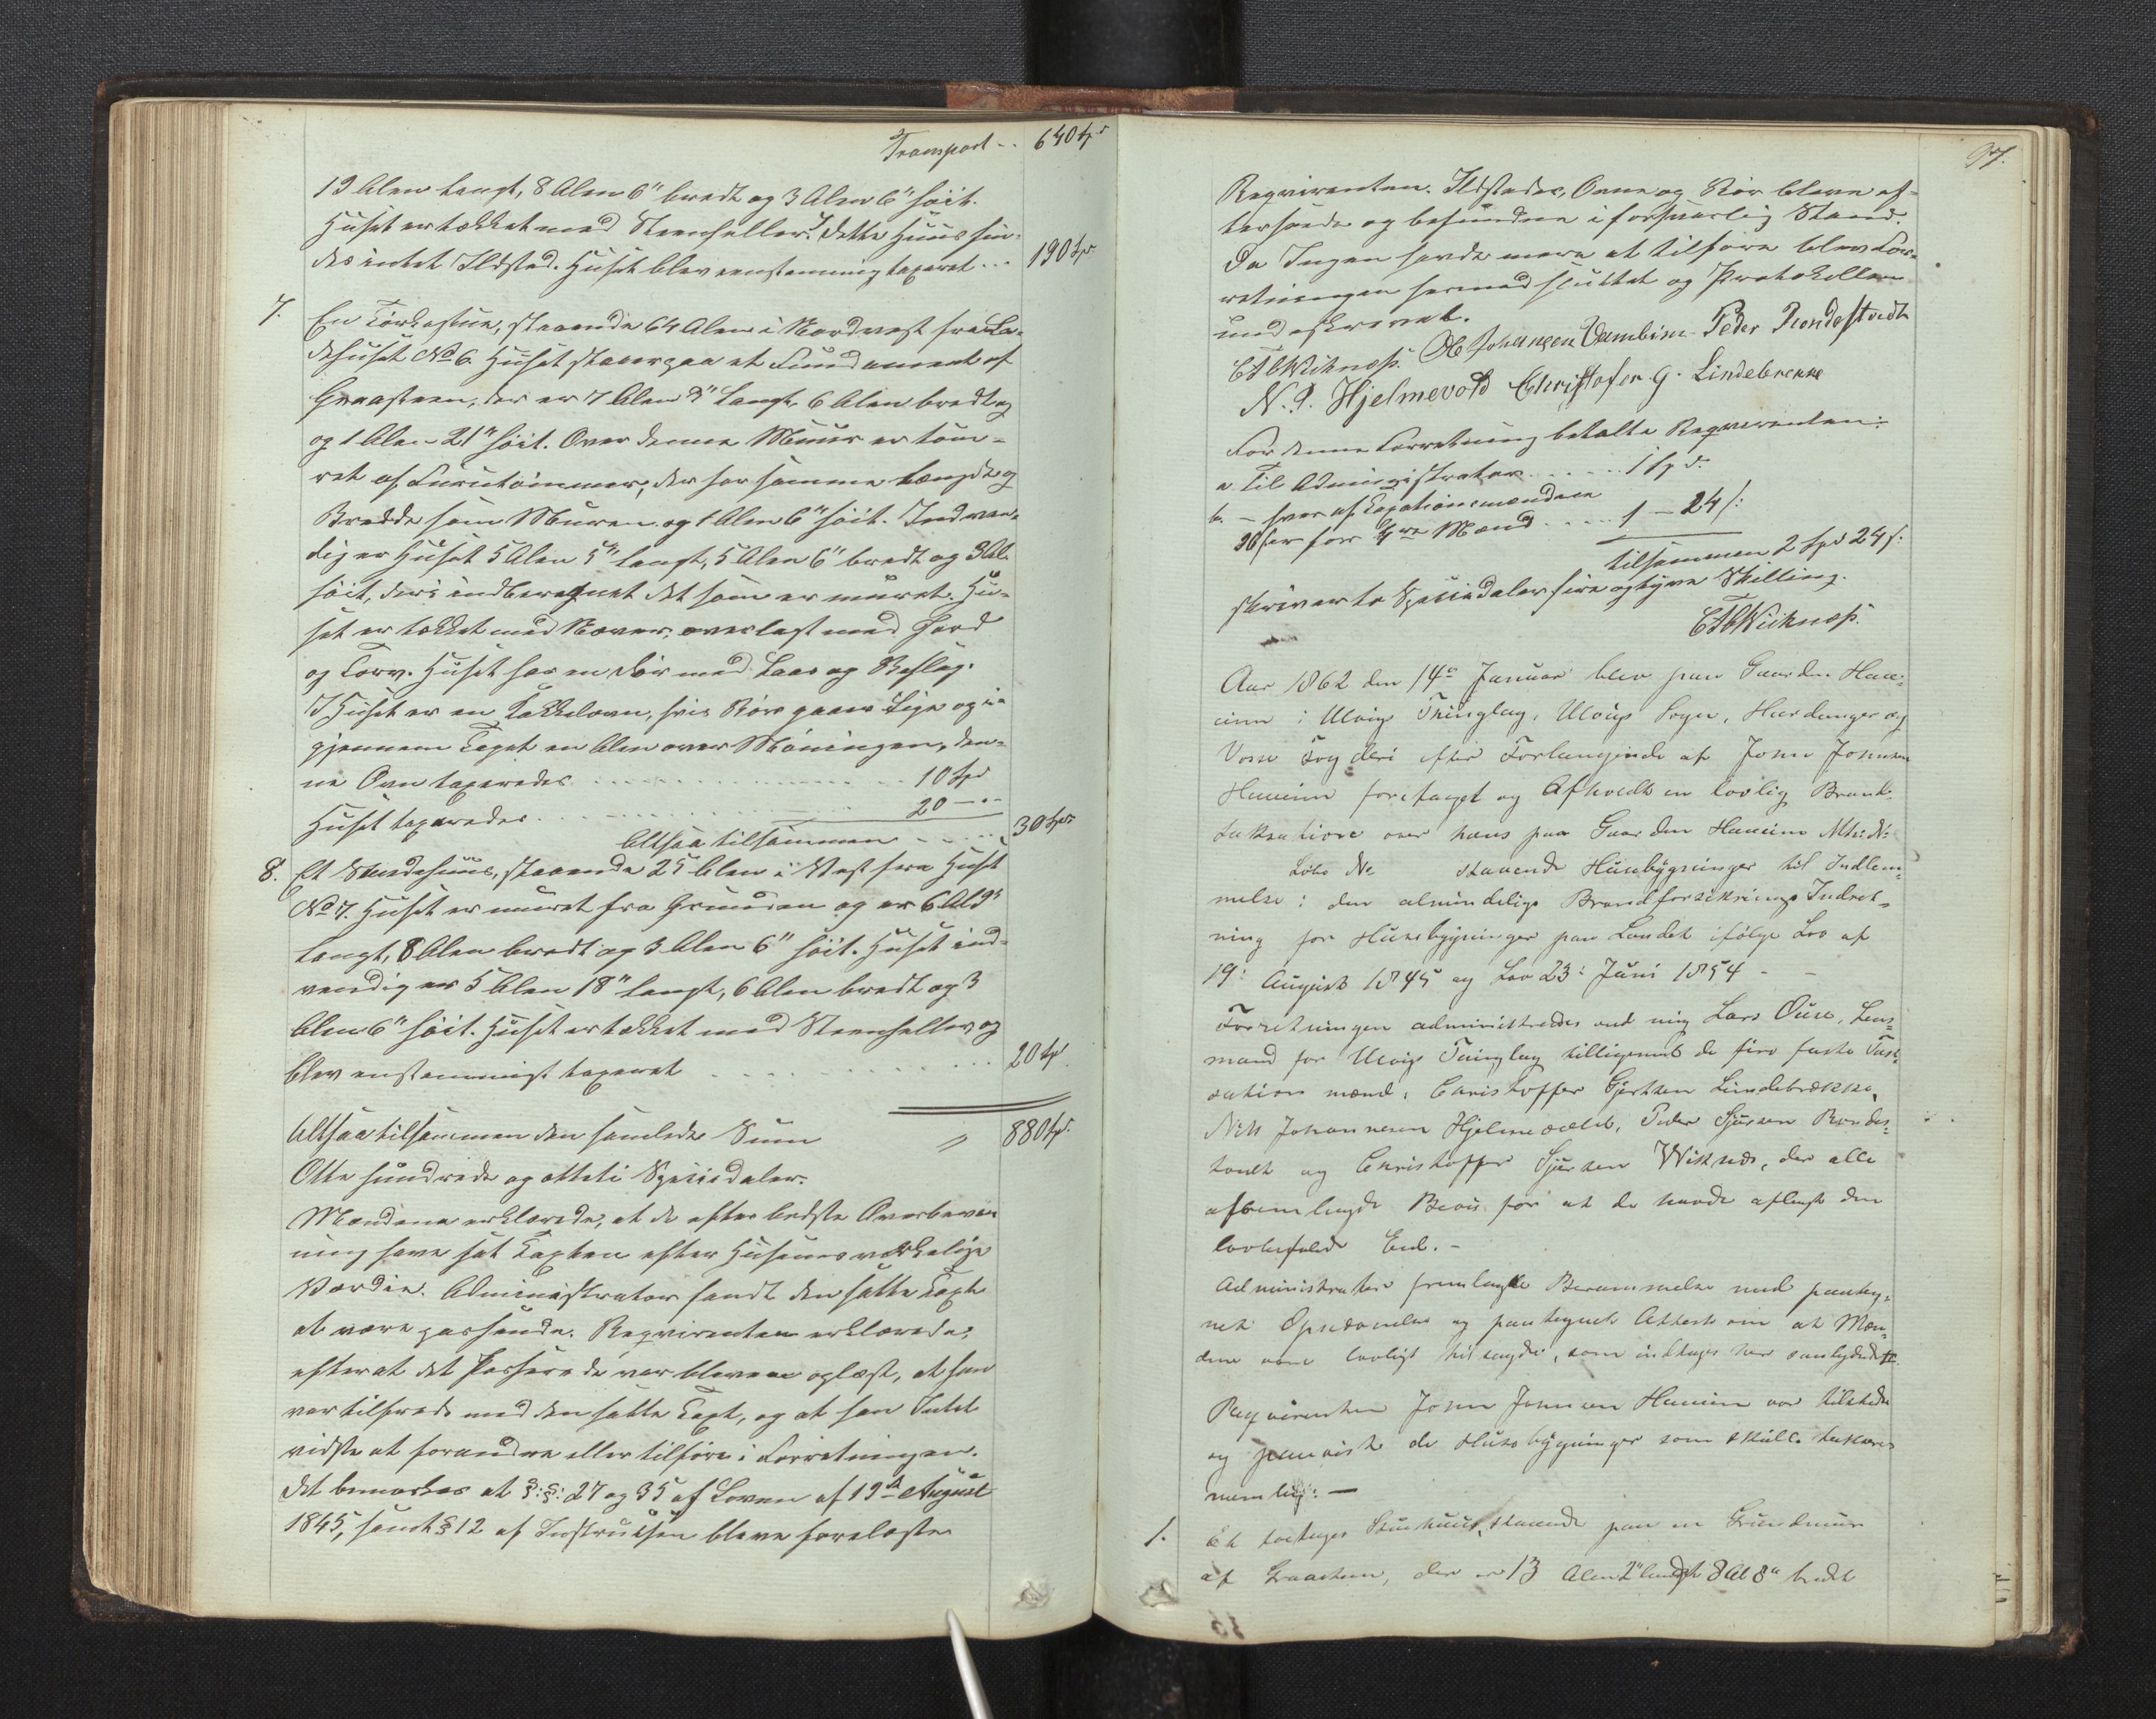 Transport .. 640 spd
19 Alen langt, 8 Alen 6" bredt og 3 Alen 6" höit.
Huset er tækket med Steenheller. I dette Huus fin-
des intet Ildsted. Huset blev eenstemmig taxeret ... 190 spd.
7. En Törkestue, staaende 64 Alen i Nordvest fra La-
dehuset No 6. Huset staaer paa et Fundament af
Graasteen, der er 7 Alen 9" langt, 6 Alen bredt og
og 1 Alen 21" höit. Over denne Muur er töm-
ret af Furutömmer, der har samme Længde og
Bredde som Muren og 1 Alen 6" höit. Indven-
dig er Huset 5 Alen 5" langt, 5 Alen 6" bredt og 3 Al.
höit, deri indberegnet det som er muret. Hu-
set er tækket med Næver, overlagt med Jord
og Torv. Huset har en Dör med Laas og Beslag.
I Huset er en Kakkelovn, hvis Rör gaaer lige op i-
gjennem Taget en Alen over Möningen, den-
ne Ovn taxeredes ... 10 spd
Huset taxeredes ... 20 — "
Altsaa tilsammen ... 30 spd
8. Et Smedehuus, staaende 25 Alen i Vest fra Huset
No 7. Huset er muret fra Grunden og er 6 Al 9"
langt, 8 Alen bredt og 3 Alen 6" höit. Huset ind-
vendig er 5 Alen 18" langt, 6 Alen bredt og 3
Alen 6" höit. Huset er tækket med Steenheller og
blev enstemmigt taxeret ... 20 spd.
Altsaa tilsammen den samlede Sum " 880 spd.
Otte hundrede og otteti Speciedaler.
Mændene erklærede, at de efter bedste Overbeviis-
ning have sat Taxten efter Husenes virkelige
Værdie. Administrator fandt den satte Taxt
at være passende. Reqvirenten erklærede,
efterat det Passerede var bleven oplæst, at han
var tilfreds med den satte Taxt, og at han Intet
vidste at forandre eller tilföie i Forretningen.
Det bemærkes at §.§. 27 og 35 af Loven af 19de August
1845, samt § 12 af Instruxen bleve forelæste
97.
Reqvirenten. Ildsteder, Ovne og Rör bleve ef-
terseede og befundne i forsvarlig Stand.
Da Ingen havde mere at tilföre blev For-
retningen hermed sluttet og Protokollen
underskrevet.
Ole Johannesen Vambim Peder Rondestvedt
N. J. Hjelmevold Christofer G. Lindebrekke
For denne Forretning betalte Reqvirenten:
a Til Administrator ..... 1 spd.
b. — hver af Taxationsmændene
36 s er for 4re Mænd .... 1 — 24 s:
tilsammen 2 spd 24 s.
skriver to Speciedaler fire og tyve Skilling.
Aar 1862 den 14de Januar blev paa Gaarden Hau-
eim i Ulvigs Thinglag, Ulvigs Sogn, Hardanger og
Voss Fogderi efter Forlangende af John Johnsen
Haueim foretaget og Afholdt en lovlig Brand-
taksation over hans paa Gaarden Haueim Mtr: No
Löbe No staaende Huusbygninger til Indlem-
melse i den almindelige Brandforsikrings Indret-
ning for Huusbygninger paa Landet ifölge Lov af
19: August 1845 og Lov 23: Juni 1854 - -
Forretningen administreredes ved mig Lars Ouse, Lens-
mand for Ulvigs Thinglag tilligemed de fire faste Tak-
sations mænd, Christoffer Gjertsen Lindebrække,
Nils Johannesen Hjelmevold, Peder Sjursen Rondes-
tvedt og Christoffer Sjursen Wiknes, der alle
afremlagde Bevis for at de havde aflagt den
lovbefalede Eed. -
Administrator fremlagde Berammelse med paateg-
net Opnævnelse og paategnet Attest om at Mæn-
dene vare lovligt tilsagte, som indtages her saalydende
Reqvirenten John Johnsen Haueim var tilstede
og paaviste de Huusbygninger som skulle takseres
nemlig: —
1. Et toetages Stuehuus, staaende paa en Grundmuur
af Graasteen, der er 13 Alen 2" langt 8 Al 8" bredt